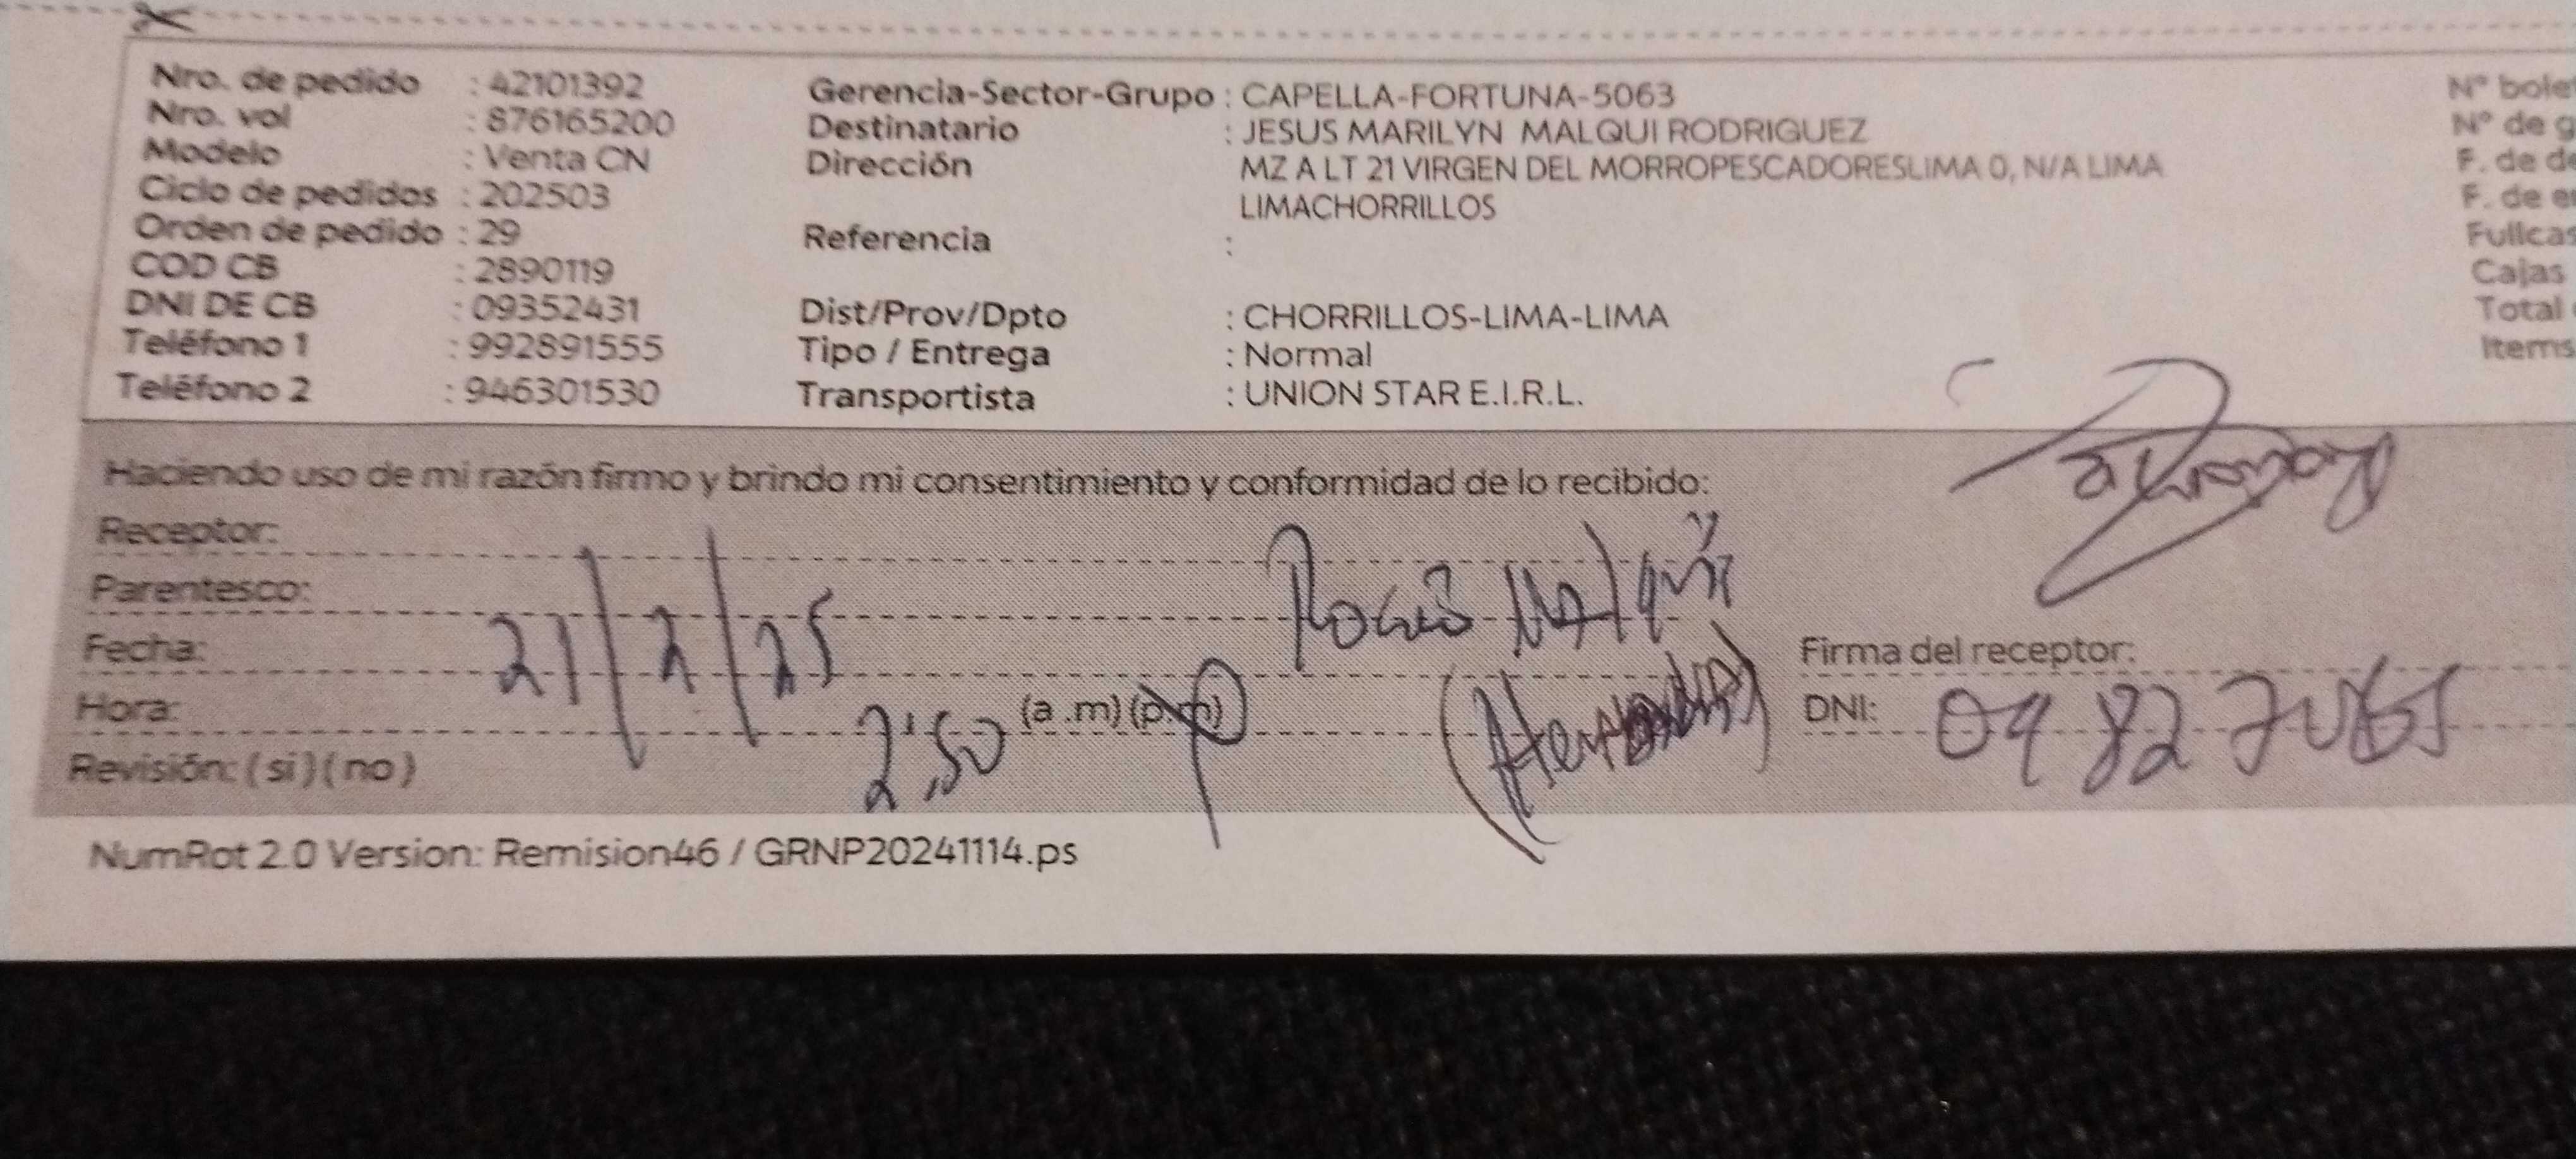 Nro. de pedido : 42101392
Nro. vol : 876165200
Modelo : Venta CN
Ciclo de pedidos : 202503
Orden de pedido : 29
COD CB : 2890119
DNI DE CB : 09352431
Teléfono 1 : 992891555
Teléfono 2 : 946301530
Gerencia-Sector-Grupo : CAPELLA-FORTUNA-5063
Destinatario : JESUS MARILYN MALQUI RODRIGUEZ
Dirección MZ A LT 21 VIRGEN DEL MORROPESCADORESLIMA 0, N/A LIMA
LIMACHORRILLOS
Referencia :
Dist/Prov/Dpto : CHORRILLOS-LIMA-LIMA
Tipo / Entrega : Normal
Transportista : UNION STAR E.I.R.L.
N° bole
N° de g
F. de de
F. de e
Fullcas
Cajas
Total
Items
Haciendo uso de mi razón firmo y brindo mi consentimiento y conformidad de lo recibido:
Receptor:
Parentesco: Rocio Malqui
Fecha: 21/2/25
Hora: 2:50 (a .m) (p.m)
Revisión: (si) (no)
Firma del receptor:
DNI: 09827065
NumRot 2.0 Version: Remision46 / GRNP20241114.ps